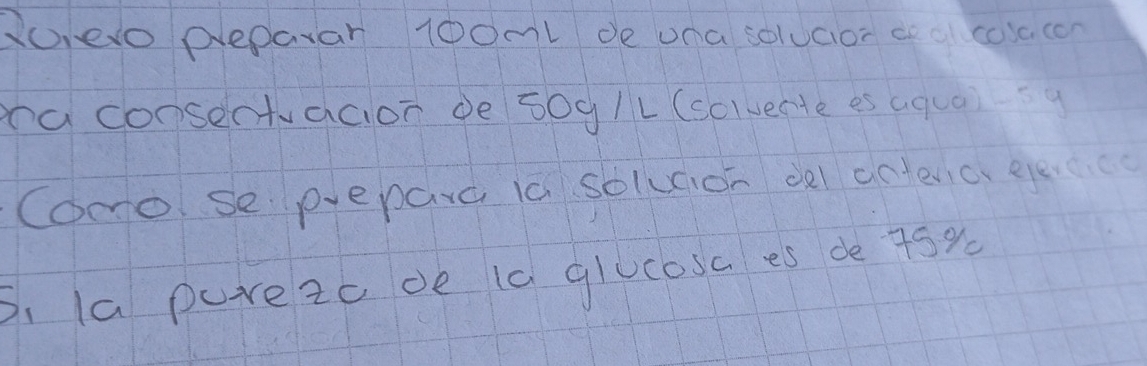 Quiero preparar 100mL de una solucion de glucosa con
na consentracion de 50g/L (solvente es agua) 5g
Como se prepara la solucion del anterior ejercicio
Si la pureza de la glucosa es de 75%